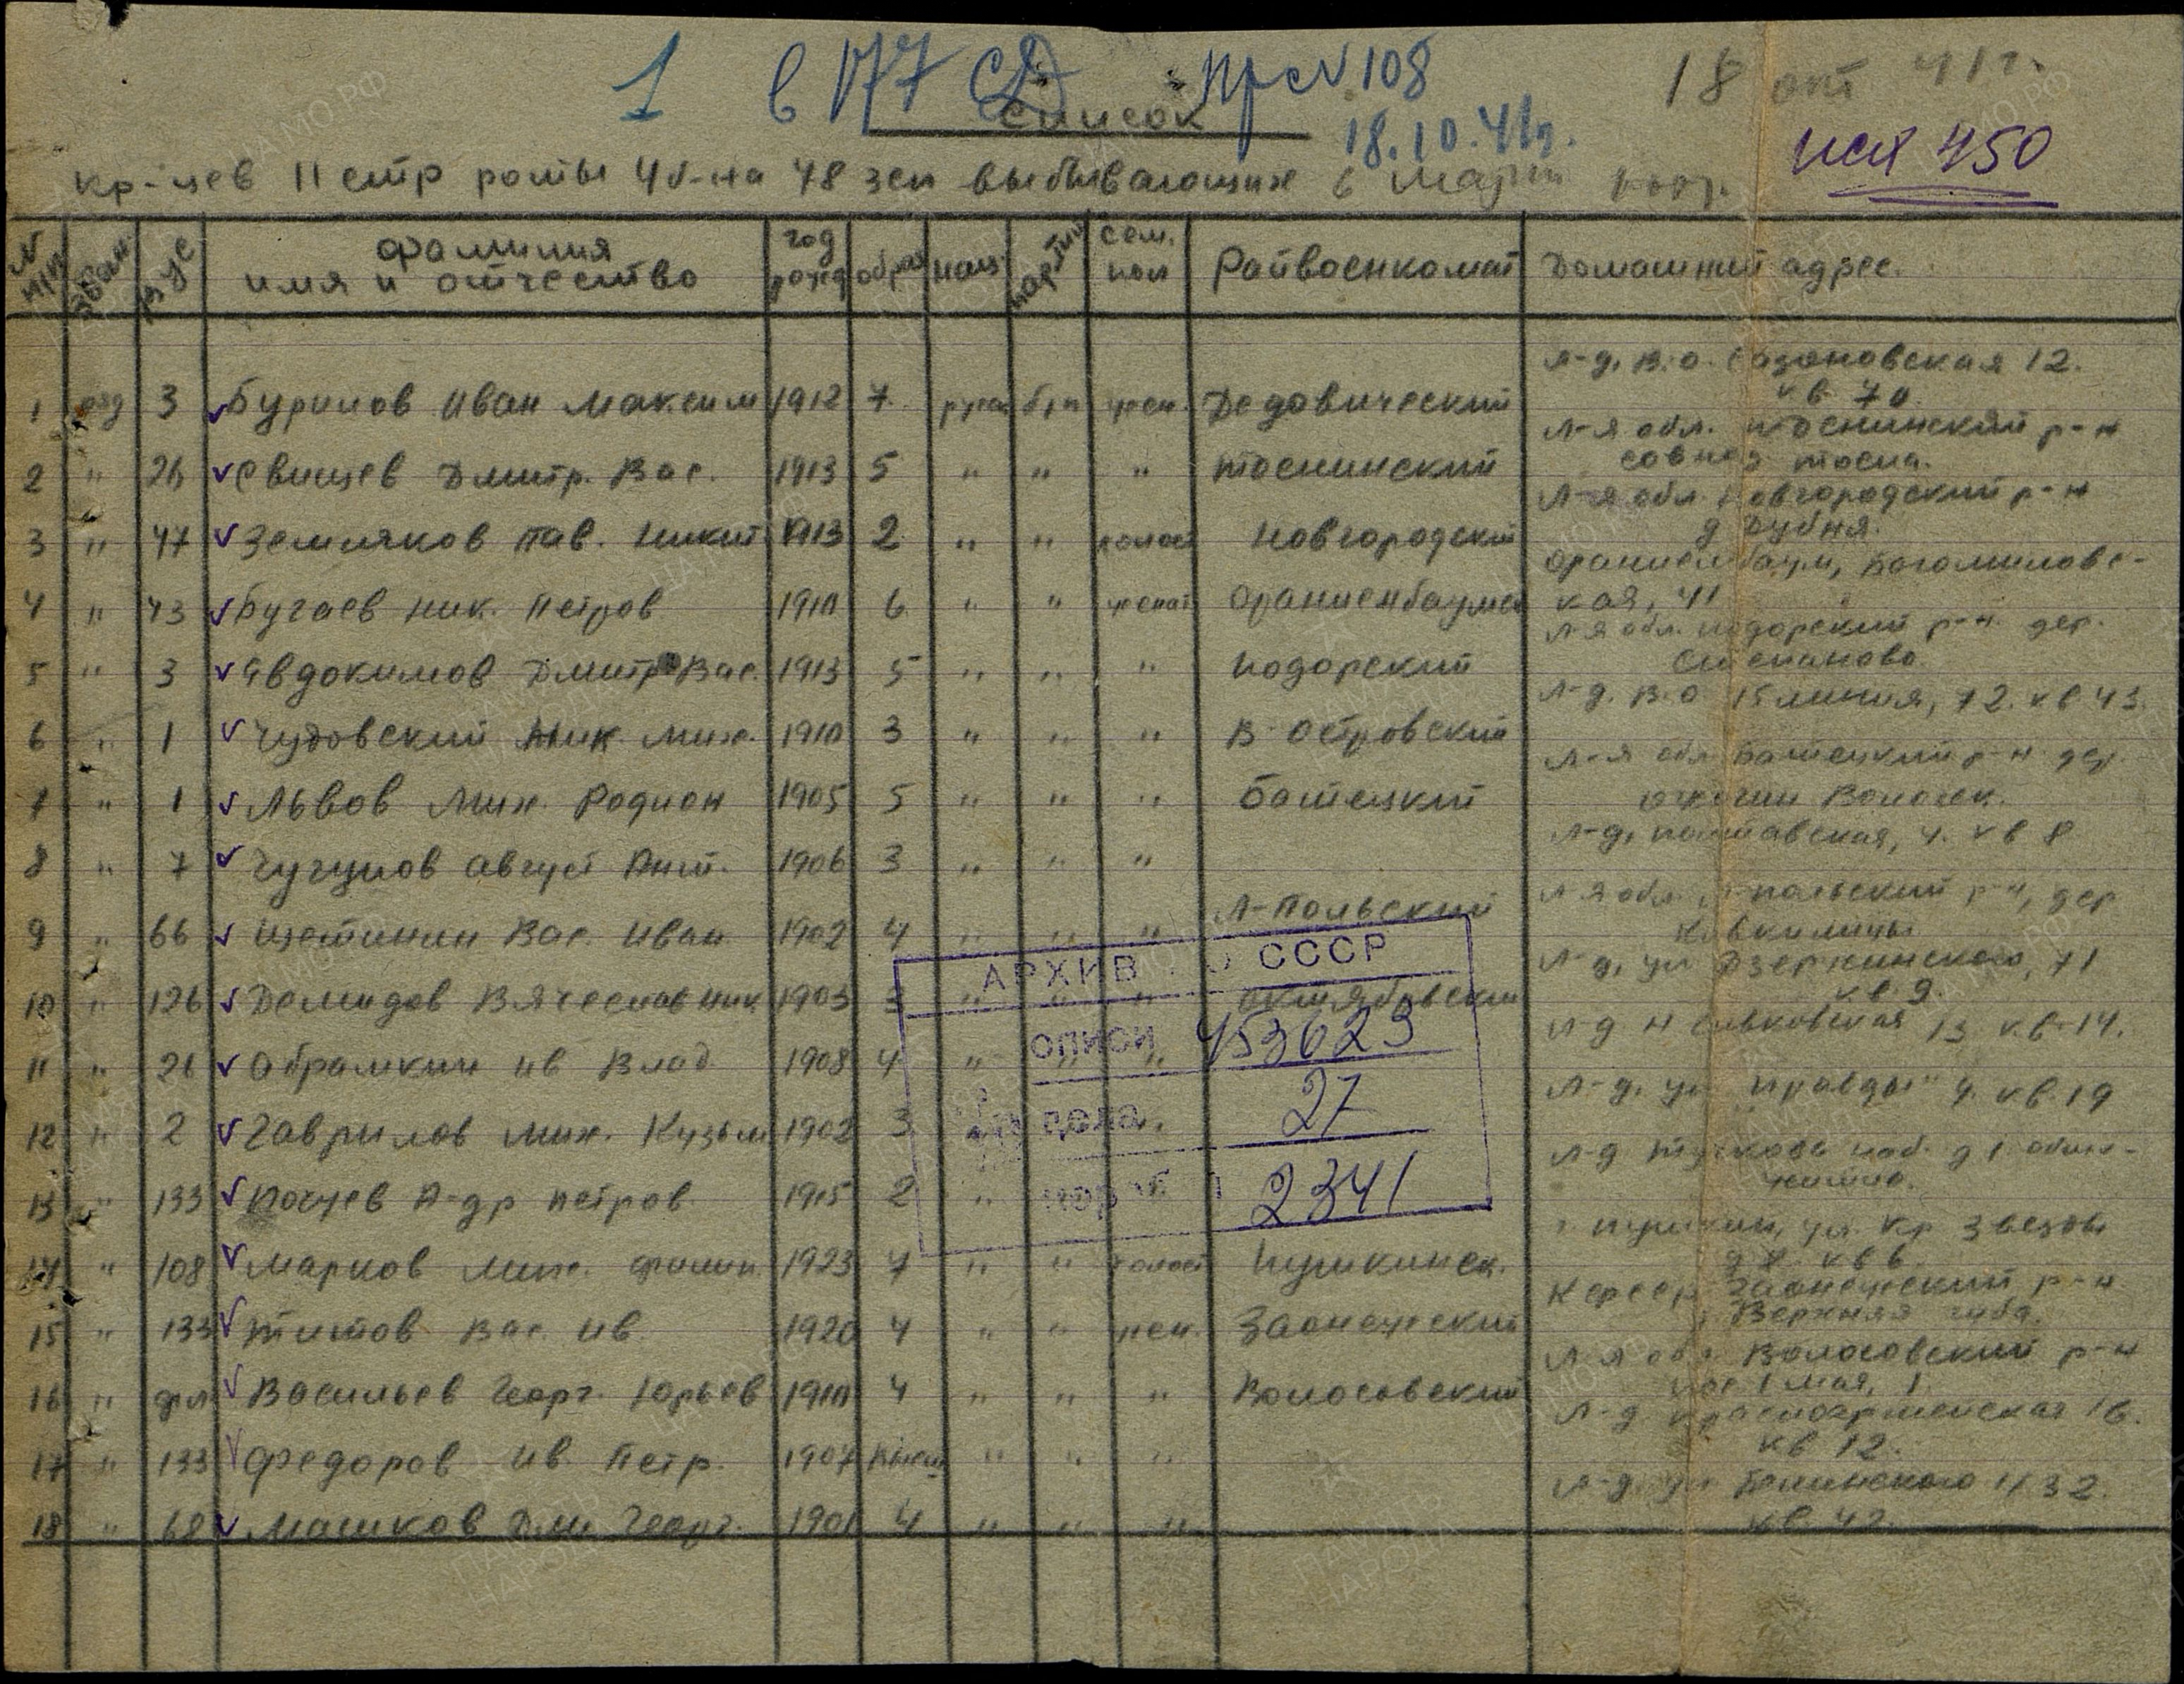 1 в 177 СД Пр с № 108
18 окт 41 г.
Список
18.10.41 г.
исх 450
кр-цев 11 стр роты 4 б-на 48 зсп выбывающих в марш роту.
№ п/п
ВУС
фамилия имя и отчество
год рожд
образ
нац.
партии
сем. пол
Райвоенкомат
Домашний адрес.
л-д. В.О. 12.
1 3 Буринов Иван Максим 1912 7 русс б/п жен. Дедовический
кв. 70
л-я обл. Тоснинский р-н
2 " 26 Свищев Дмитр. Вас. 1913 5 " " " Тоснинский
совхоз Тосна.
л-я обл. Новгородский р-н
3 " 47 Земляков Пав. Никит. 1913 2 " " холост Новгородский
д Дубня.
Ораниенбаум, Богомиловс-
4 " 43 Бугаев Ник. Петров 1910 6 " " женат Ораниенбаумск
кая, 41
л-я обл. Подорский р-н. дер.
5 " 3 Явдокимов Дмитр Вас. 1913 5 " " " Подорский
Степаново
л-д. В.О 15 линия, 72. кв 43.
6 " 1 Чудовский Ник. Мих. 1910 3 " " " В-Островский
л-я обл Батецкий р-н дер.
7 " 1 Львов Мих. Родион 1905 5 " " " Батецкий
л-д, Полтавская, 4. кв 8
8 " 7 Чугунов Август Ант. 1906 3 " " "
л-я обл. л-польский р-н, дер
9 " 66 Щетинин Вас. Иван. 1902 4 " " " Л-Польский
л-д, ул Дзержинского, 71
10 " 126 Демидов Вячеслав Ник 1903 3 " " " Октябрьский
кв. 9.
АРХИВ О СССР
описи 453623
дела 27
кор 2341
л-д 13 кв. 14.
11 " 21 Абрамкин Ив Влад 1908 4 " " "
л-д. ул "Правды" 4. кв. 19
12 " 2 Гаврилов Мих. Кузьм 1902 3
л-д Тучкова наб. д 1 обще-
13 " 133 Почуев А-др Петров. 1915 2 "
житие.
г. Пушкин, ул. Кр Звезды
14 " 108 Марков Мих. Филип. 1923 7 " " холост Пушкинск.
кв 6
Ксрсср Заонежский р-н
15 " 133 Титов Вас. Ив. 1920 4 " " жен. Заонежский
Верхняя губа.
л-я обл Волосовский р-н
16 " Васильев Георг. Юрьев 1910 4 " " " Волосовский
пос 1 мая, 1.
л-д. Красноармейская 16.
17 " 133 Федоров Ив. Петр. 1907 " " "
кв 12.
л-д. ул Белинского 32.
18 " 68 Машков Дми Георг. 1901 4 " " "
кв. 42.